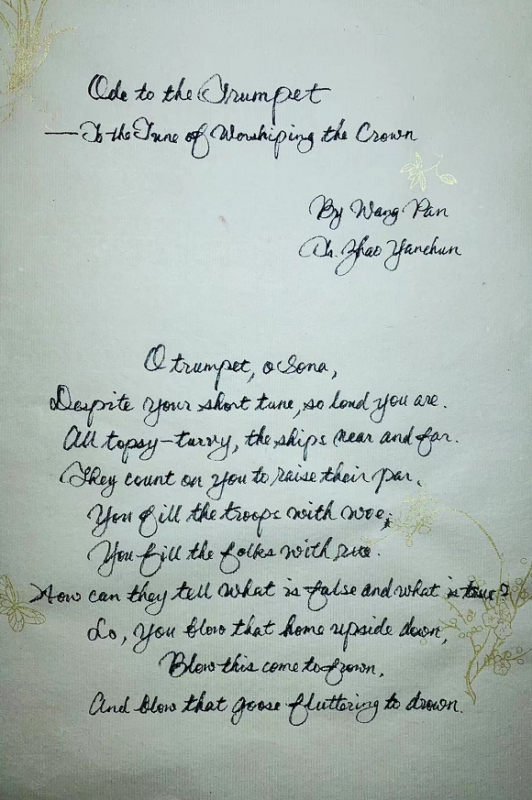 Ode to the Trumpet
—To the Tune of Worshiping the Crown
By Wang Pan
Tr. Zhao Yanchun
O trumpet, o Sona,
Despite your short tune, so loud you are.
All topsy-turvy, the ships near and far.
They count on you to raise their par.
You fill the troops with woe;
You fill the folks with rue.
How can they tell what is false and what is true?
Lo, you blow that home upside down,
Blow this come to frown,
And blow that goose fluttering to drown.